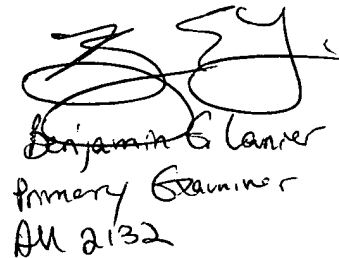 Benjamin E Lanier
Primary Examiner
AU 2132